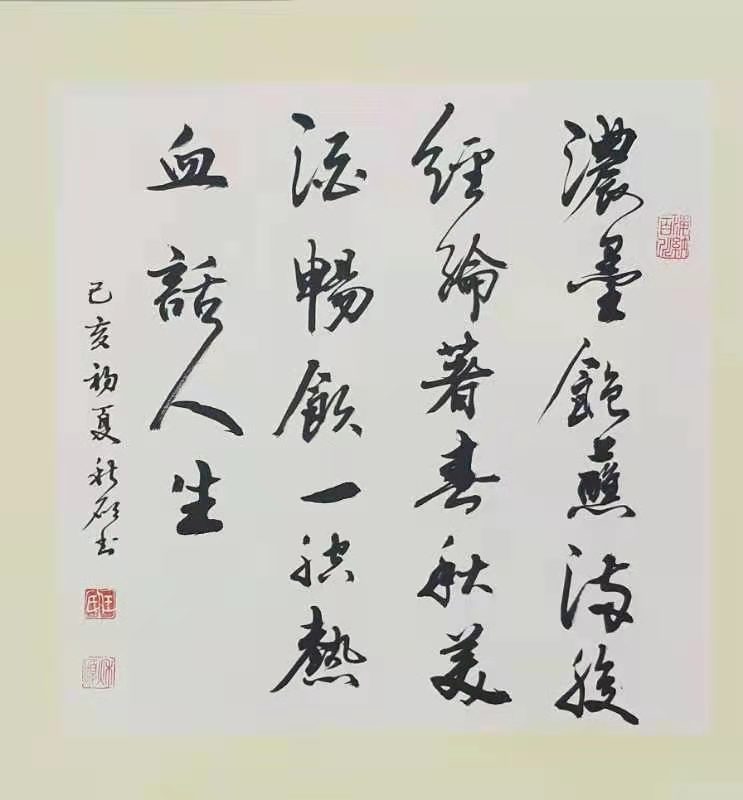 濃墨飽蘸滿腹
經綸著春秋美
酒暢飲一腔熱
血話人生
己亥初夏秋书